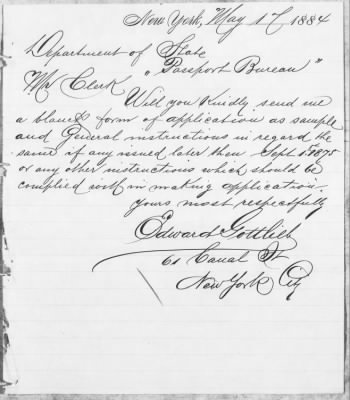 New York, May 17 1884
Department of State
"Passport Bureau"
Mr Clerk
Will you kindly send me
a blank form of application as sample
and General instructions in regard the
same if any issued later then Sept 1st 1875
or any other instructions which should be
complied with in making application.
yours most respectfully
Edward Gottlieb
61 Canal St
New York City